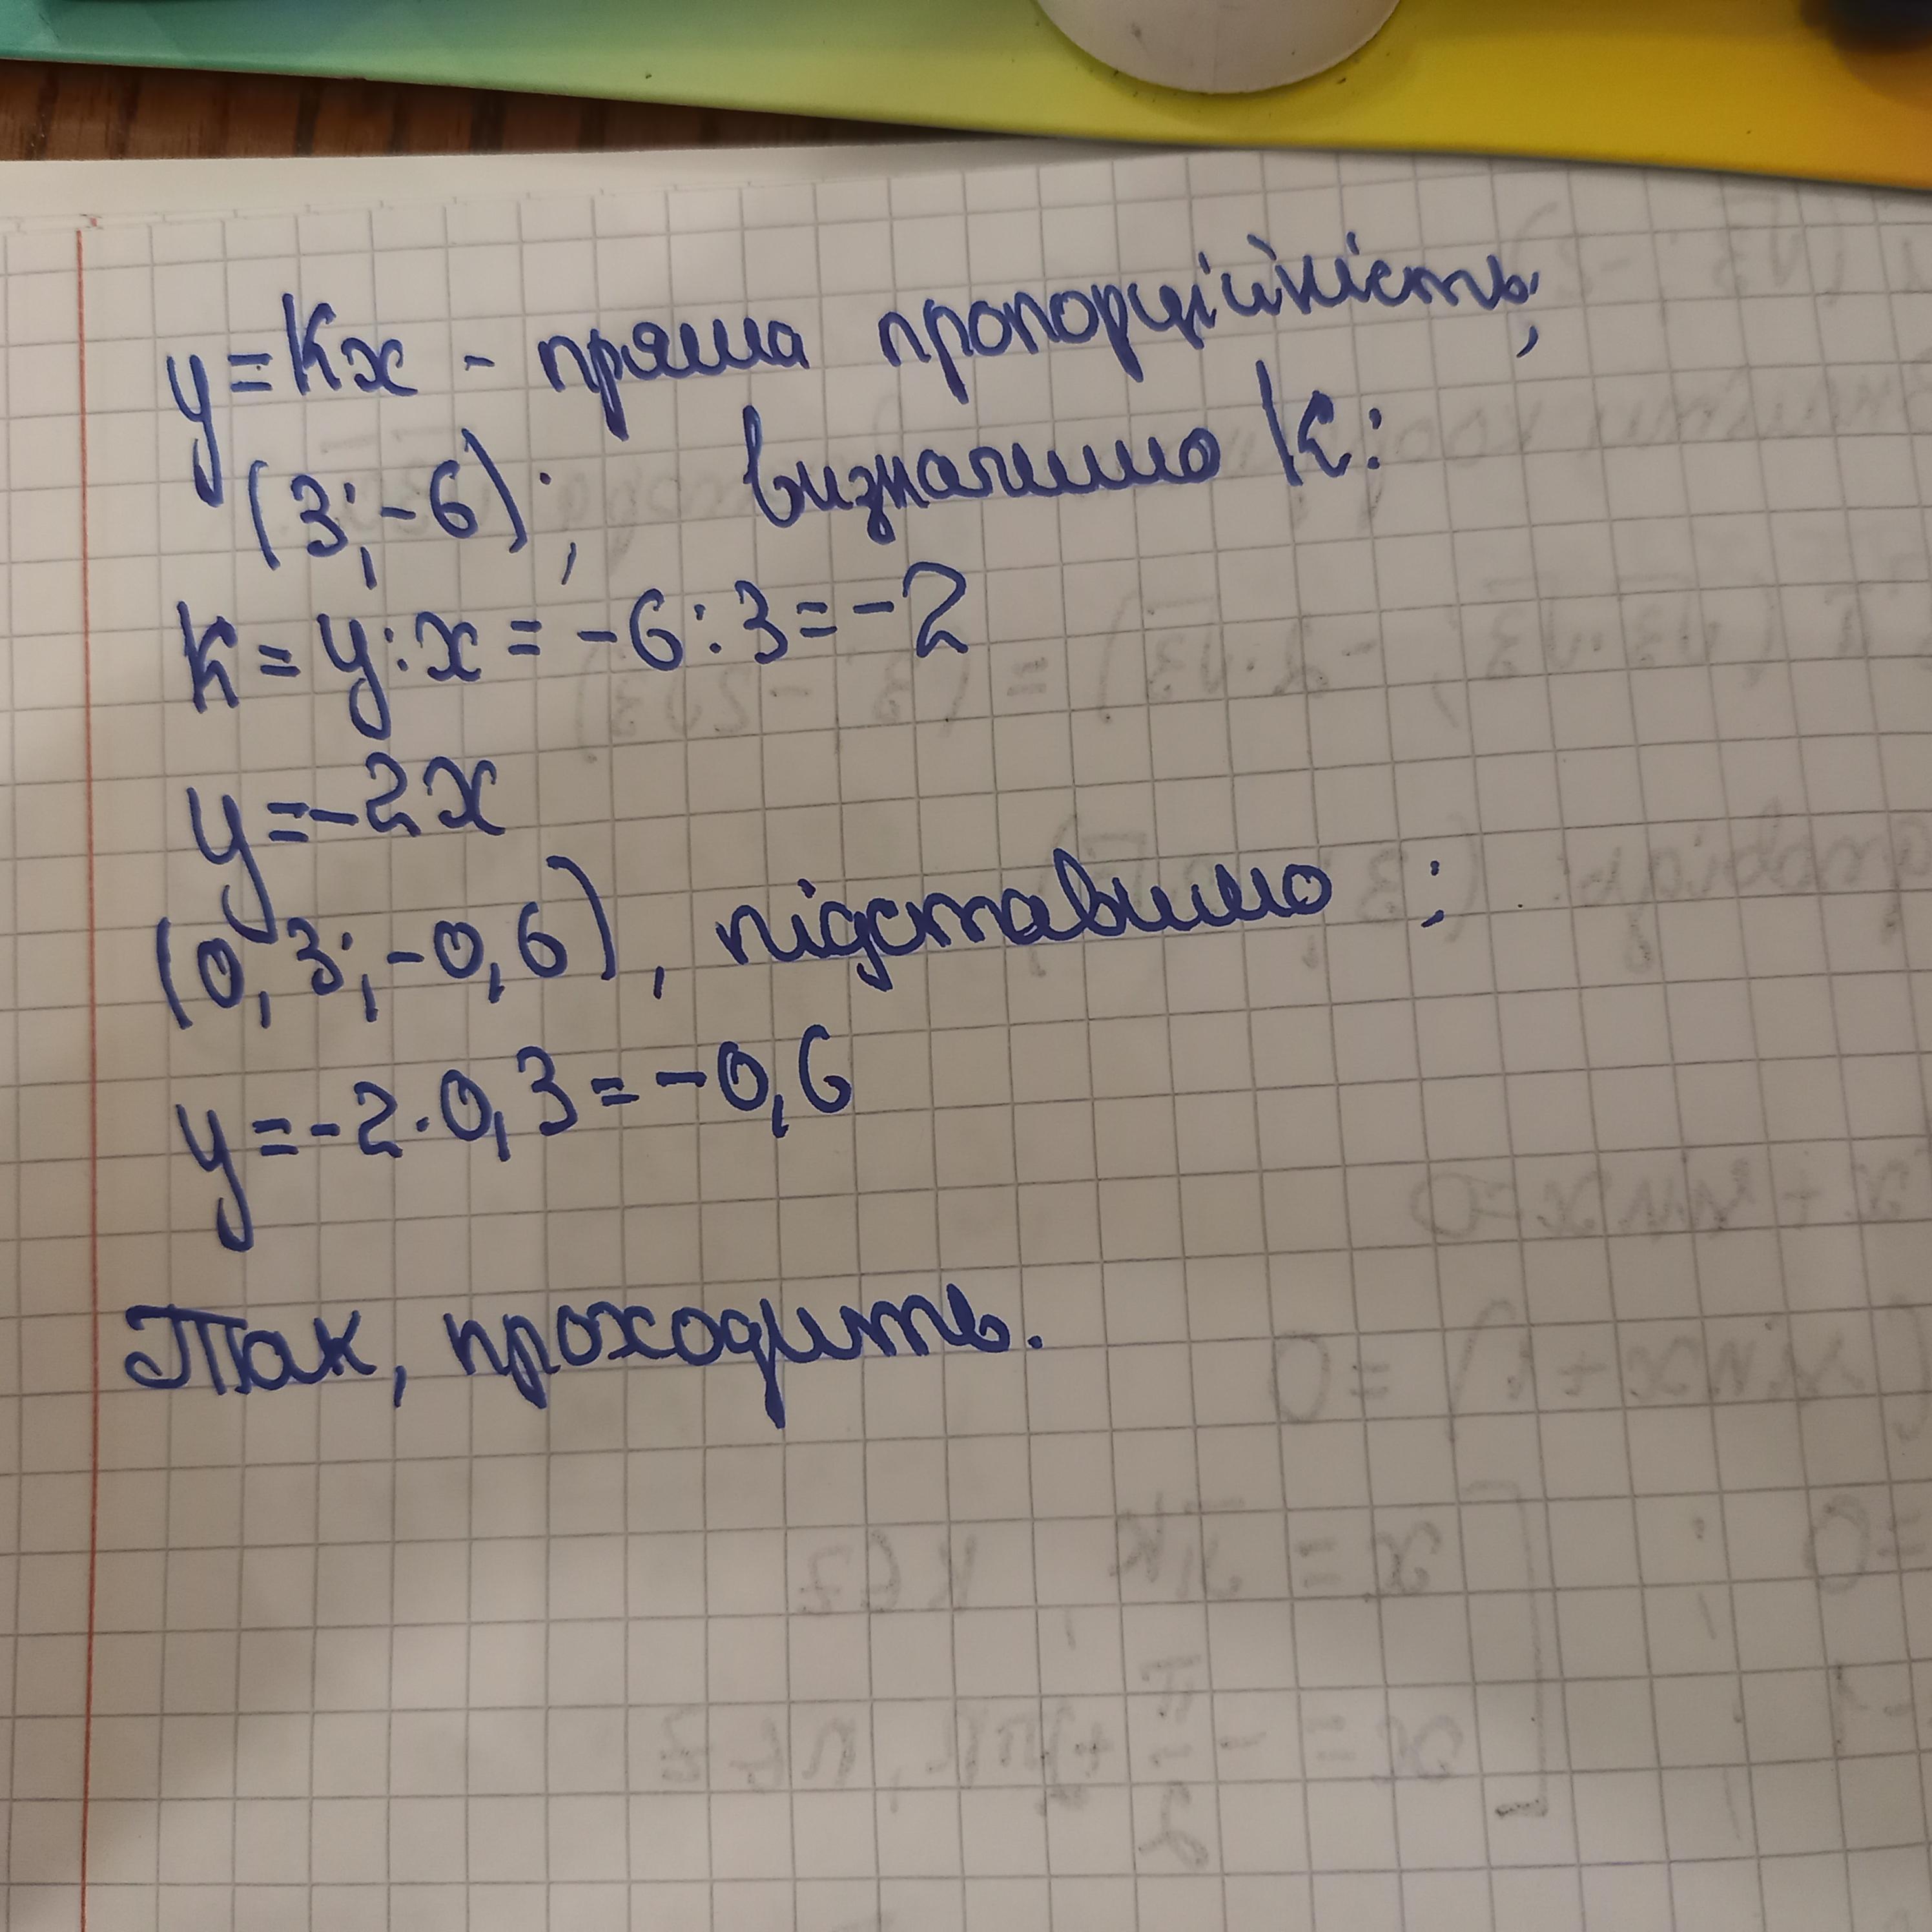 y=kx - пряма пропорційність,
(3;-6); визначимо k:
k=y:x=-6:3=-2
y=-2x
(0,3;-0,6), підставимо:
y=-2·0,3=-0,6
Так, проходить.